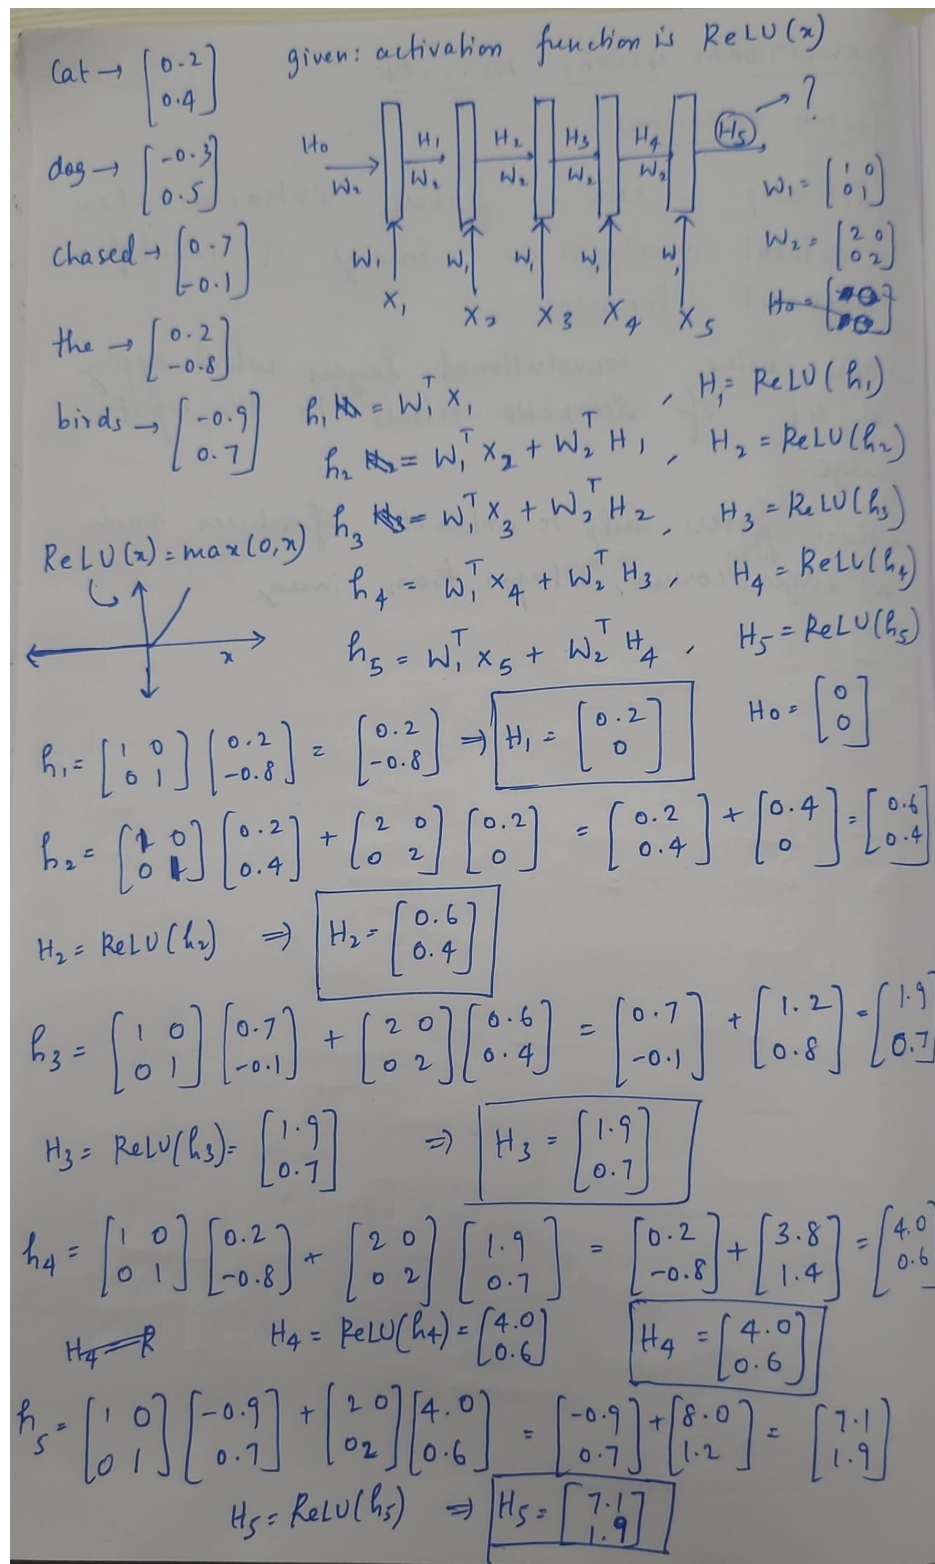 given: activation function is ReLU(x)
Cat → [0.2 0.4]
dog → [-0.3 0.5]
chased → [0.7 -0.1]
the → [0.2 -0.8]
birds → [-0.9 0.7]
H₀ H₁ H₂ H₃ H₄ H₅ → ?
W₂ W₂ W₂ W₂ W₂
W₁ W₁ W₁ W₁ W₁
X₁ X₂ X₃ X₄ X₅
W₁ = [1 0; 0 1]
W₂ = [2 0; 0 2]
h₁ = W₁ᵀ X₁ , H₁ = ReLU(h₁)
h₂ = W₁ᵀ X₂ + W₂ᵀ H₁ , H₂ = ReLU(h₂)
h₃ = W₁ᵀ X₃ + W₂ᵀ H₂ , H₃ = ReLU(h₃)
h₄ = W₁ᵀ X₄ + W₂ᵀ H₃ , H₄ = ReLU(h₄)
h₅ = W₁ᵀ X₅ + W₂ᵀ H₄ , H₅ = ReLU(h₅)
ReLU(x) = max(0,x)
x
H₀ = [0; 0]
h₁ = [1 0; 0 1] [0.2; -0.8] = [0.2; -0.8] ⇒ H₁ = [0.2; 0]
h₂ = [1 0; 0 1] [0.2; 0.4] + [2 0; 0 2] [0.2; 0] = [0.2; 0.4] + [0.4; 0] = [0.6; 0.4]
H₂ = ReLU(h₂) ⇒ H₂ = [0.6; 0.4]
h₃ = [1 0; 0 1] [0.7; -0.1] + [2 0; 0 2] [0.6; 0.4] = [0.7; -0.1] + [1.2; 0.8] = [1.9; 0.7]
H₃ = ReLU(h₃) = [1.9; 0.7] ⇒ H₃ = [1.9; 0.7]
h₄ = [1 0; 0 1] [0.2; -0.8] + [2 0; 0 2] [1.9; 0.7] = [0.2; -0.8] + [3.8; 1.4] = [4.0; 0.6]
H₄ = ReLU(h₄) = [4.0; 0.6] H₄ = [4.0; 0.6]
h₅ = [1 0; 0 1] [-0.9; 0.7] + [2 0; 0 2] [4.0; 0.6] = [-0.9; 0.7] + [8.0; 1.2] = [7.1; 1.9]
H₅ = ReLU(h₅) ⇒ H₅ = [7.1; 1.9]